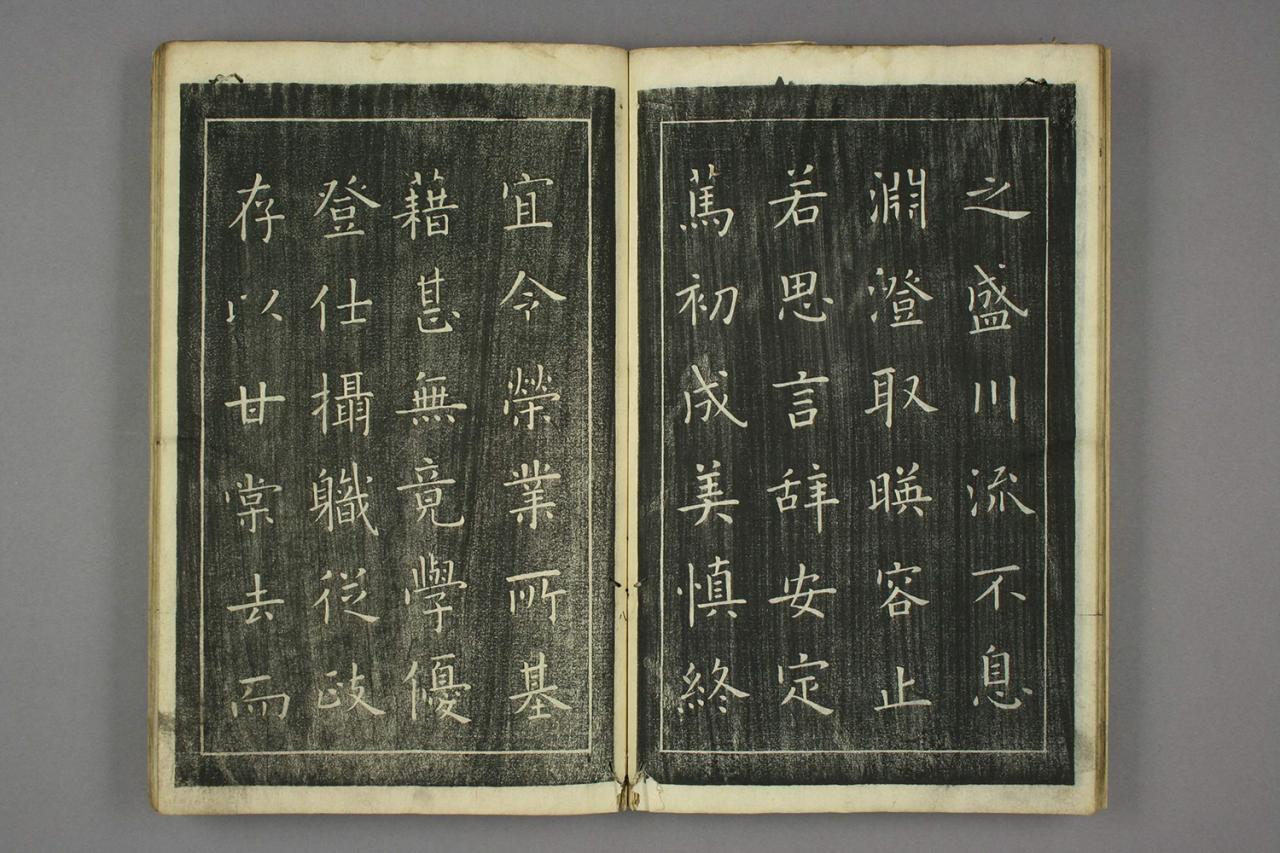 之盛川流不息
淵澄取暎容止
若思言辞安定
篤初成美慎終
宜令榮業所基
藉甚無竟學優
登仕攝職從政
存以甘棠去而